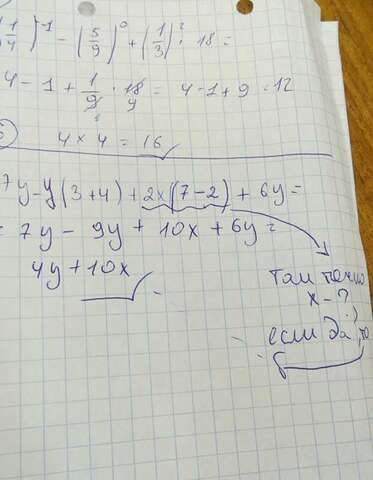 1/4)⁻¹ - (5/9)⁰ + (1/3)² · 18 =
4 - 1 + 1/9 · 18 = 4-1+9=12
4 × 4 = 16
7y-y(3+4)+2x(7-2)+6y=
= 7y - 9y + 10x + 6y =
4y+10x
там точно
x - ?
если да, то